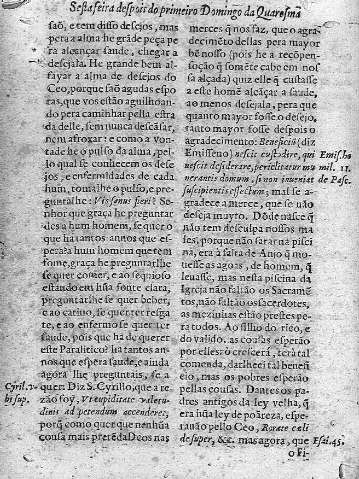 Sesta feira despois do primeiro Domingo da Quaresma
saõ, e tem disso desejos, mas
pera a alma he grãde peça pe
ra alcançar saude, chegar a
desejala. He grande bem al-
fayar a alma de desejos do
Ceo, porque saõ agudas espo-
ras, que vos estão aguilhoan-
do pera caminhar pella estra
da delle, sem nunca descãsar,
nem afroxar: e como a Von-
tade he o pulso da alma, pe-
lo qual se conhecem os dese-
jos, e enfermidades de cada
hum, toma lhe o pulso, e pre-
guntalhe: Vis sanus fieri? Se-
nhor que graça he preguntar
des a hum homem, se quer o
que ha tantos annos que es-
pera? a hum homem que tem
fome, graça he preguntarlhe
se quer comer, e ao sequioso
estando em hũa fonte clara,
preguntarlhe se quer beber,
e ao catiuo, se quer ter resga-
te, e ao enfermo se quer ter
saude, pois que ha de querer
este Paralitico? ha tantos an-
nos que espera saude, e ainda
agora lhe preguntais, se a
quer? Diz S. Cyrillo, que a re-
zão foy, Vt cupiditate valetu-
dinis ad petendum accenderet,
porq̃ como quer que nenhũa
cousa mais pretẽda Deos nas
Cyril. v-
bi sup.
merces q̃ nos faz, que o agra-
decimẽto dellas pera mayor
bẽ nosso (pois he a recõpen-
soção q̃ somẽte cabe em nos
sa alçada) quiz elle q̃ custasse
a este homẽ alcãçar a saude,
ao menos desejala, pera que
quanto mayor fosse o desejo,
tanto mayor fosse despois o
agradecimento: Beneficiũ (diz
Emisseno) nescit custodire, qui
nescit desiderare, periclitatur mu
nerantis donum, si non inueniat
suscipientis effectum; mal se a-
gradece a merce, que se não
deseja muyto. Dõde nasce q̃
não tem desculpa nossos ma
les, porque não sarar na pisci
na, era á falta de Anjo q̃ mo-
uesse as agoas, de homem, q̃
leuasse, mas nesta piscina da
Igreja não faltão os Sacramẽ
tos, não faltão os sacerdotes,
as mezinhas estão prestes pe-
ra todos. Ao filho do rico, e
do valido, as cousas esperão
por elles: o crescerá, terá tal
comenda, darlhe ei tal benefi
cio, mas os pobres esperão
pellas cousas. Dantes os pa-
dres antigos da ley velha, q̃
era hũa ley de pobreza, espe-
rauão pello Ceo, Rorate cæli
desuper, &c. mas agora, que
o Fi-
Emis. ho
mil. 11.
de Pasc.
Esai. 45.